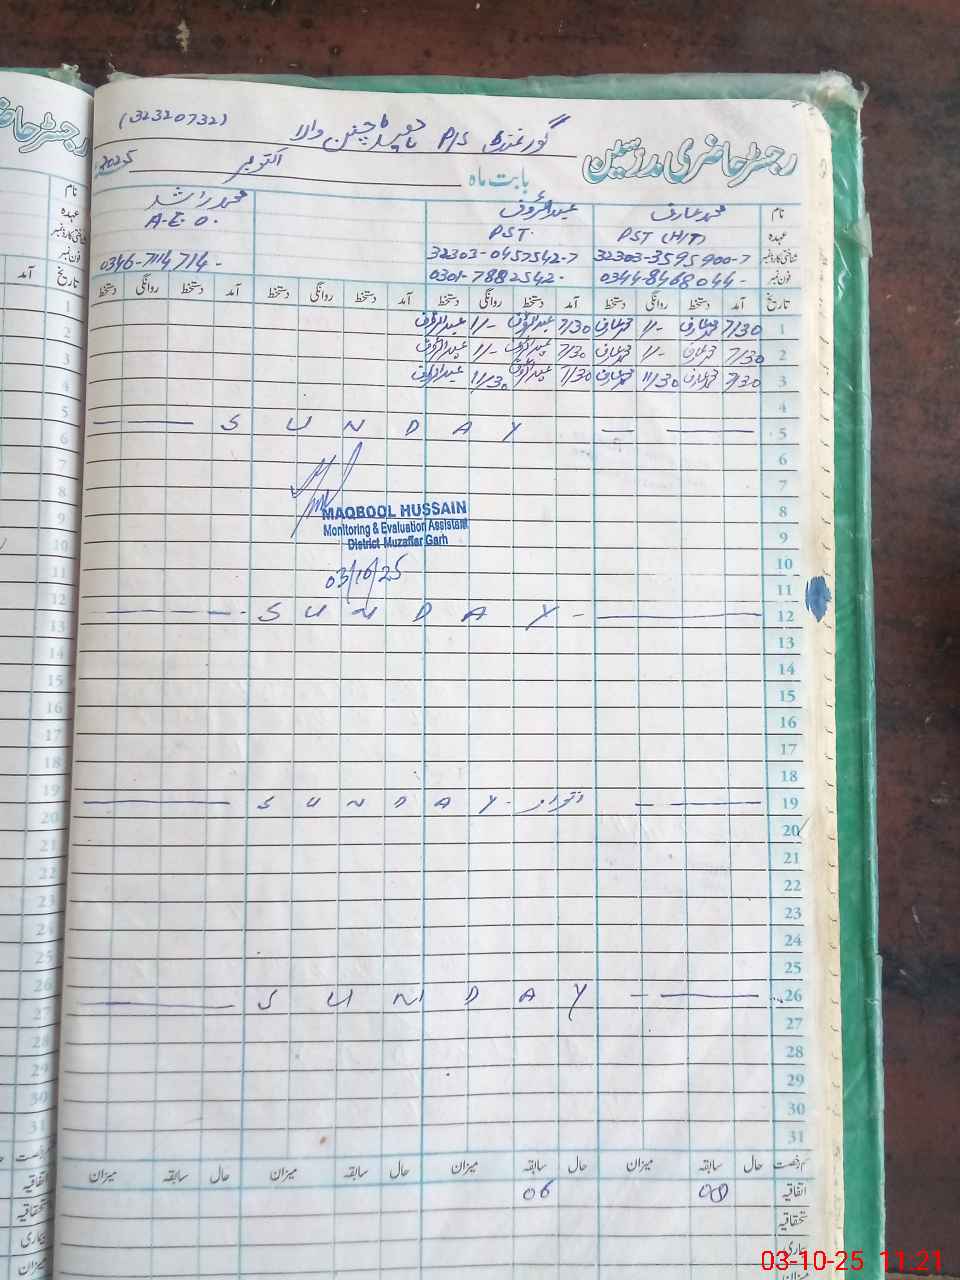 (32320732)
گورنمنٹ P/S چنن والا
رجسٹر حاضری مدرسین
بابت ماہ اکتوبر 2025
نام محمد عارف عبدالرؤف محمد راشد
عہدہ PST (H/T) PST. A.E.O.
شناختی کارڈ نمبر 32303-3595900-7 32303-0457542-7
فون نمبر 0344-8468044- 0301-7882542. 0346-7114714-
تاریخ آمد دستخط روانگی دستخط آمد دستخط روانگی دستخط آمد دستخط روانگی دستخط آمد دستخط روانگی دستخط
1 7/30 محمد عارف 1/- محمد عارف 7/30 عبدالرؤف 1/- عبدالرؤف
2 7/30 محمد عارف 1/- محمد عارف 7/30 عبدالرؤف 1/- عبدالرؤف
3 7/30 محمد عارف 11/30 محمد عارف 7/30 عبدالرؤف 11/30 عبدالرؤف
4
5 SUNDAY
6
7
8
MAQBOOL HUSSAIN
Monitoring & Evaluation Assistant
9
District Muzaffar Garh
10
03/10/25
11
12 SUNDAY
13
14
15
16
17
18
19 SUNDAY. اتوار
20
21
22
23
24
25
26 SUNDAY
27
28
29
30
31
حال سابقہ میزان حال سابقہ میزان حال سابقہ میزان حال سابقہ میزان
اتفاقیہ 08 06
بیماری
میزان
03-10-25 11:21